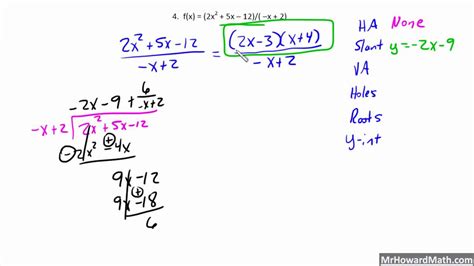 4. f(x) = (2x² + 5x – 12)/( –x + 2)
2x² + 5x - 12 / -x + 2 = (2x - 3)(x + 4) / -x + 2
HA None
Slant y = -2x - 9
VA
Holes
Roots
y-int
-2x - 9 + 6/-x+2
-x + 2 2x² + 5x - 12
- 2x² + 4x
9x - 12
9x + - 18
6
MrHowardMath.com